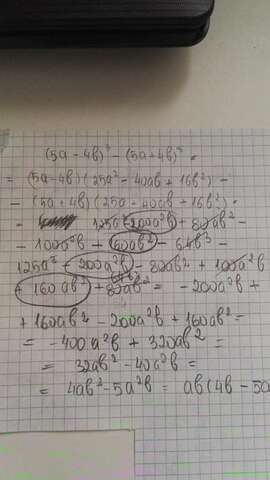 (5a - 4b)³ - (5a + 4b)³ =
= (5a - 4b)(25a² - 40ab + 16b²) -
- (5a + 4b)(25a - 40ab + 16b²) =
= 125a³ - 200a²b + 80ab² -
- 100a²b + 160ab² - 64b³ -
125a³ - 200a²b - 80ab² + 100a²b
+ 160ab² + 64b² = -200a²b +
+ 160ab² - 200a²b + 160ab² =
= -400a²b + 320ab² =
= 32ab² - 40a²b =
= 4ab² - 5a²b = ab(4b - 5a